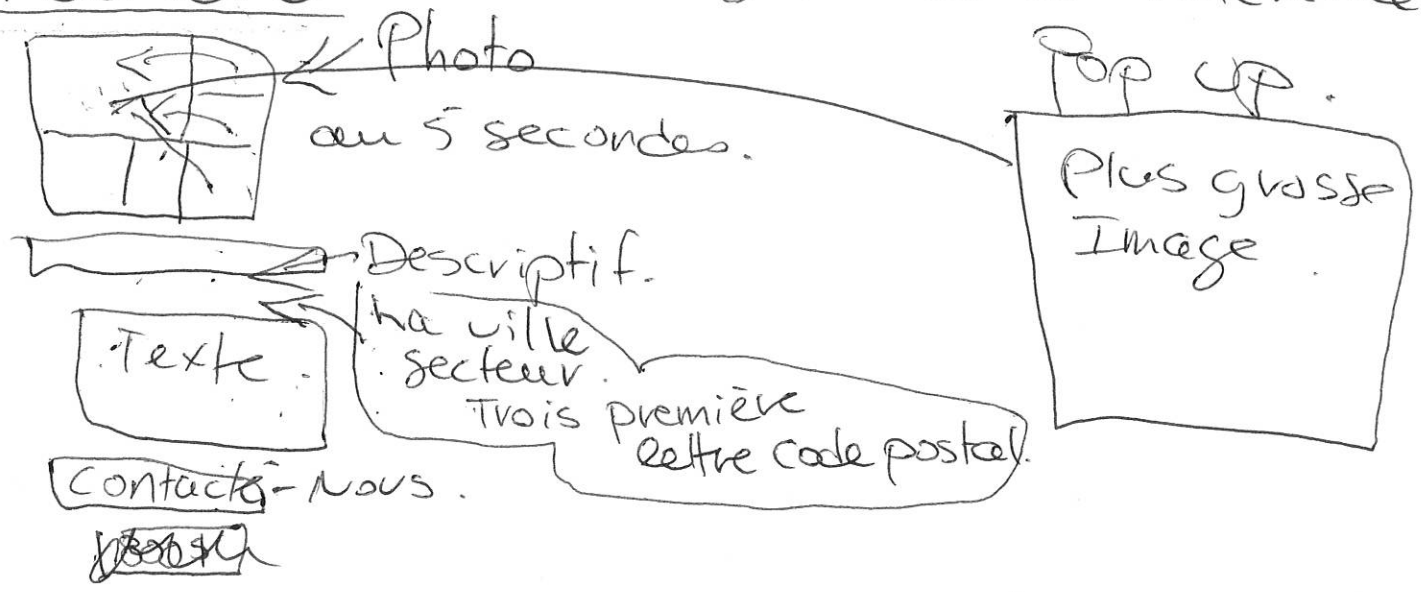 Photo
au 5 secondes.
Pop up.
Plus grosse
Image
Descriptif.
La ville
secteur.
Trois première
lettre code postal.
Texte.
Contacté-Nous.